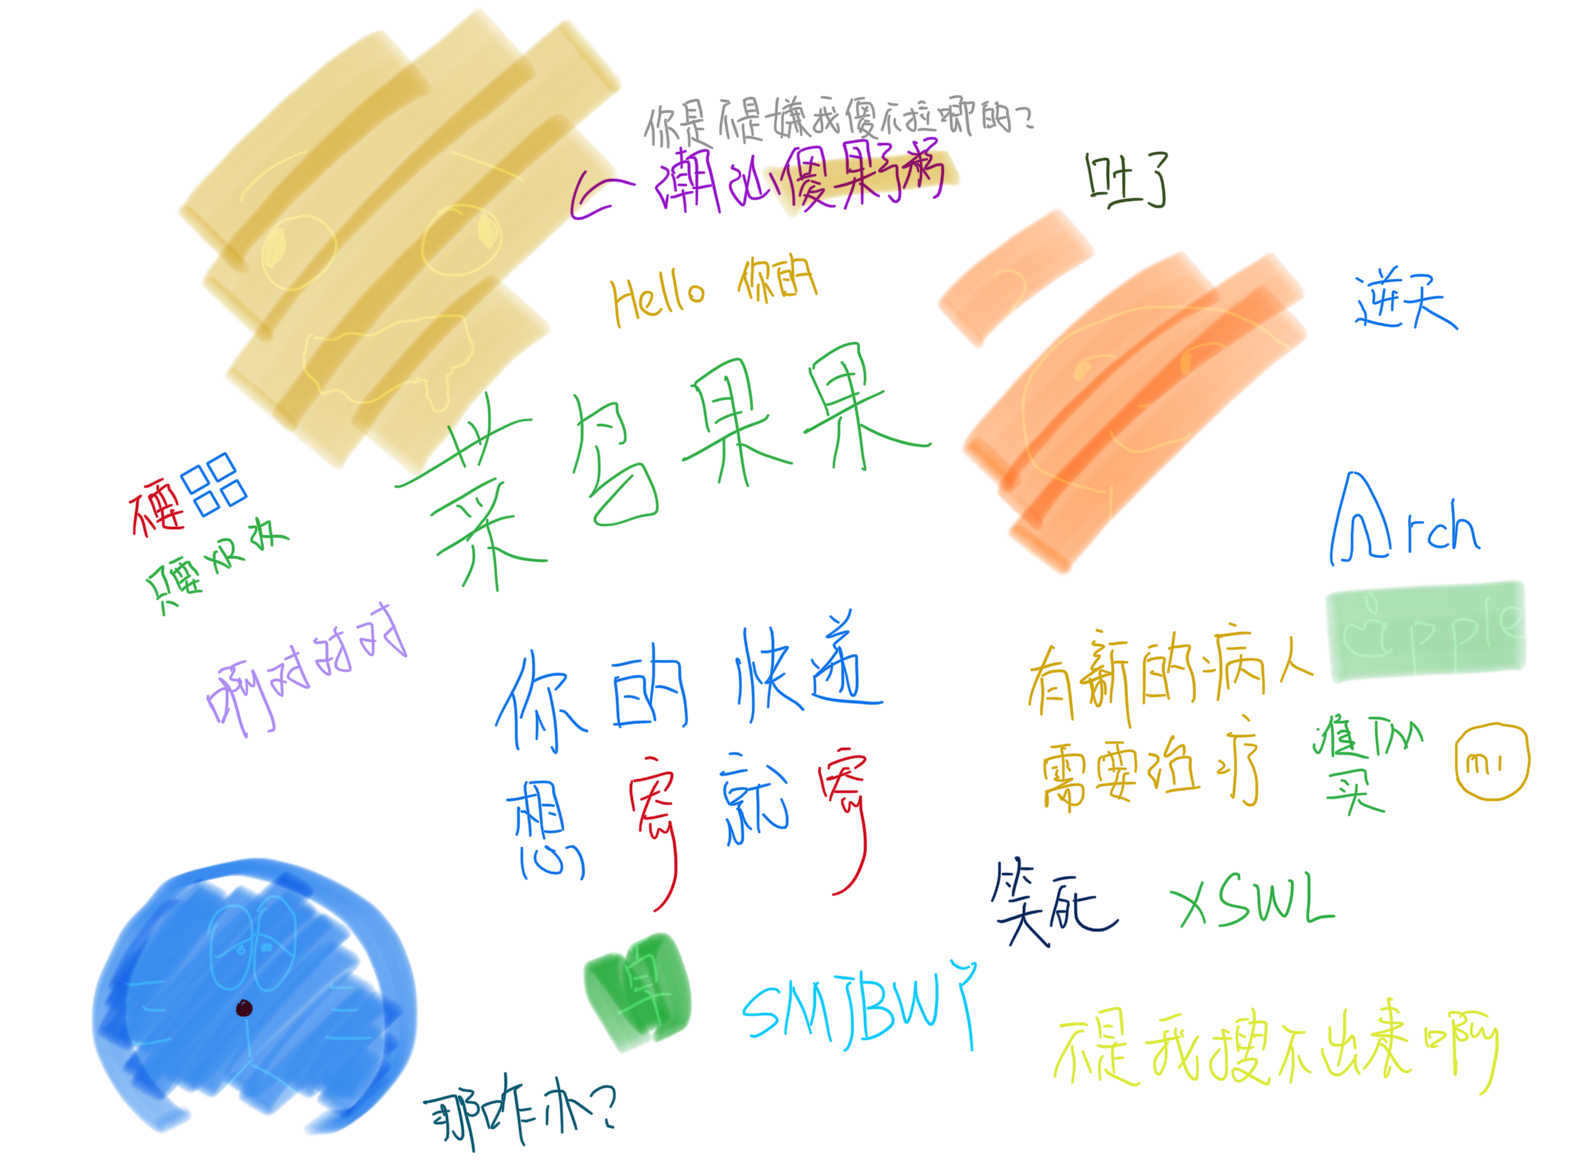 你是不是嫌我傻不拉唧的?
潮汕傻果粥
吐了
Hello 你的
逆天
菜鸟果果
不要
只要XR妆
Arch
pple
啊对对对
你的快递
想寄就寄
有新的病人
需要治疗
谁TM
买
mi
笑死 XSWL
草
SMJBWY
不是我搜不出来啊
那咋办?